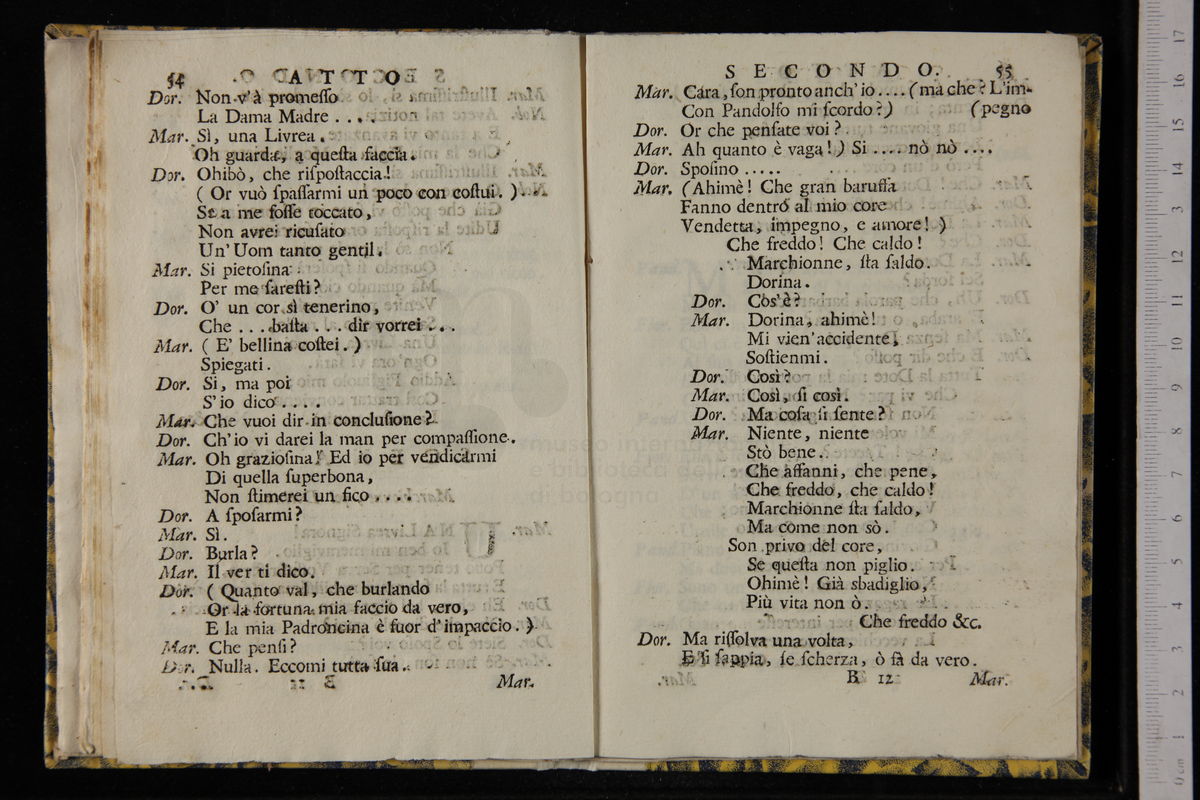 54 A T T O
Dor. Non v'à promeſſo
La Dama Madre . . . .
Mar. Sì, una Livrea.
Oh guarda, a queſta faccia.
Dor. Ohibò, che riſpoſtaccia!
( Or vuò ſpaſſarmi un poco con coſtui. )
Se a me foſſe toccato,
Non avrei ricuſato
Un' Uom tanto gentil.
Mar. Si pietoſina
Per me ſareſti?
Dor. O' un cor sì tenerino,
Che . . . baſta . . . dir vorrei . . .
Mar. ( E' bellina coſtei. )
Spiegati.
Dor. Si, ma poi
S'io dico . . . .
Mar. Che vuoi dir in concluſione?
Dor. Ch'io vi darei la man per compaſſione.
Mar. Oh grazioſina! Ed io per vendicarmi
Di quella ſuperbona,
Non ſtimerei un fico . . . .
Dor. A ſpoſarmi?
Mar. Sì.
Dor. Burla?
Mar. Il ver ti dico.
Dor. ( Quanto val, che burlando
Or la fortuna mia faccio da vero,
E la mia Padroncina è fuor d'impaccio. )
Mar. Che penſi?
Dor. Nulla. Eccomi tutta ſua.
Mar.
S E C O N D O. 55
Mar. Cara, ſon pronto anch' io . . . . (ma che? L'im-
Con Pandolfo mi ſcordo?) (pegno
Dor. Or che penſate voi?
Mar. Ah quanto è vaga! ) Si . . . . nò nò . . . .
Dor. Spoſino . . . . .
Mar. (Ahimè! Che gran baruffa
Fanno dentro al mio core
Vendetta, impegno, e amore! )
Che freddo! Che caldo!
Marchionne, ſta ſaldo.
Dorina.
Dor. Còs'è?
Mar. Dorina, ahimè!
Mi vien' accidente,
Soſtienmi.
Dor. Così?
Mar. Così, ſi così.
Dor. Ma coſa ſi ſente?
Mar. Niente, niente
Stò bene.
Che affanni, che pene,
Che freddo, che caldo!
Marchionne ſta ſaldo,
Ma come non sò.
Son privo del core,
Se queſta non piglio.
Ohimè! Già sbadiglio,
Più vita non ò.
Che freddo &c.
Dor. Ma riſſolva una volta,
E ſi ſappia, ſe ſcherza, ò fà da vero.
B 12 Mar.